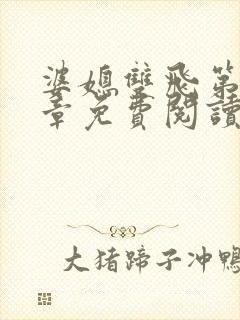 婆媳雙飛第
章免費閱讀
大猪蹄子冲鴨